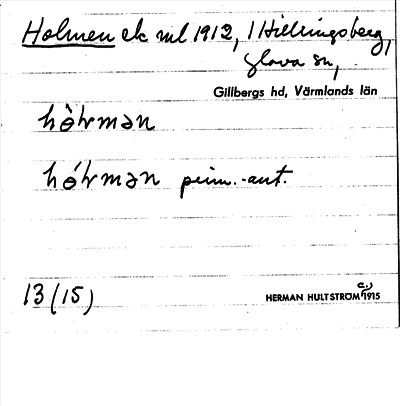 Holmen ek ml 1912, 1 Hillringsberg,
Glava sn,
Gillbergs hd, Värmlands län
hòⱡmən
hóⱡmən prim.-ant.
13 (15)
HERMAN HULTSTRÖM 1915